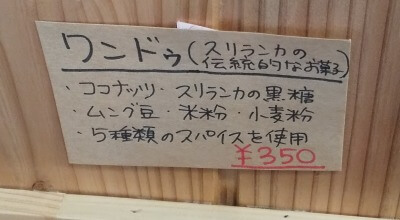 ワンドゥ(スリランカの
伝統的なお菓子)
・ココナッツ・スリランカの黒糖
・ムング豆・米粉・小麦粉
・5種類のスパイスを使用
¥350